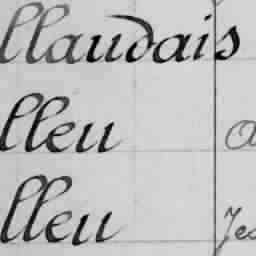 llaudais
lleu a
lleu Jes